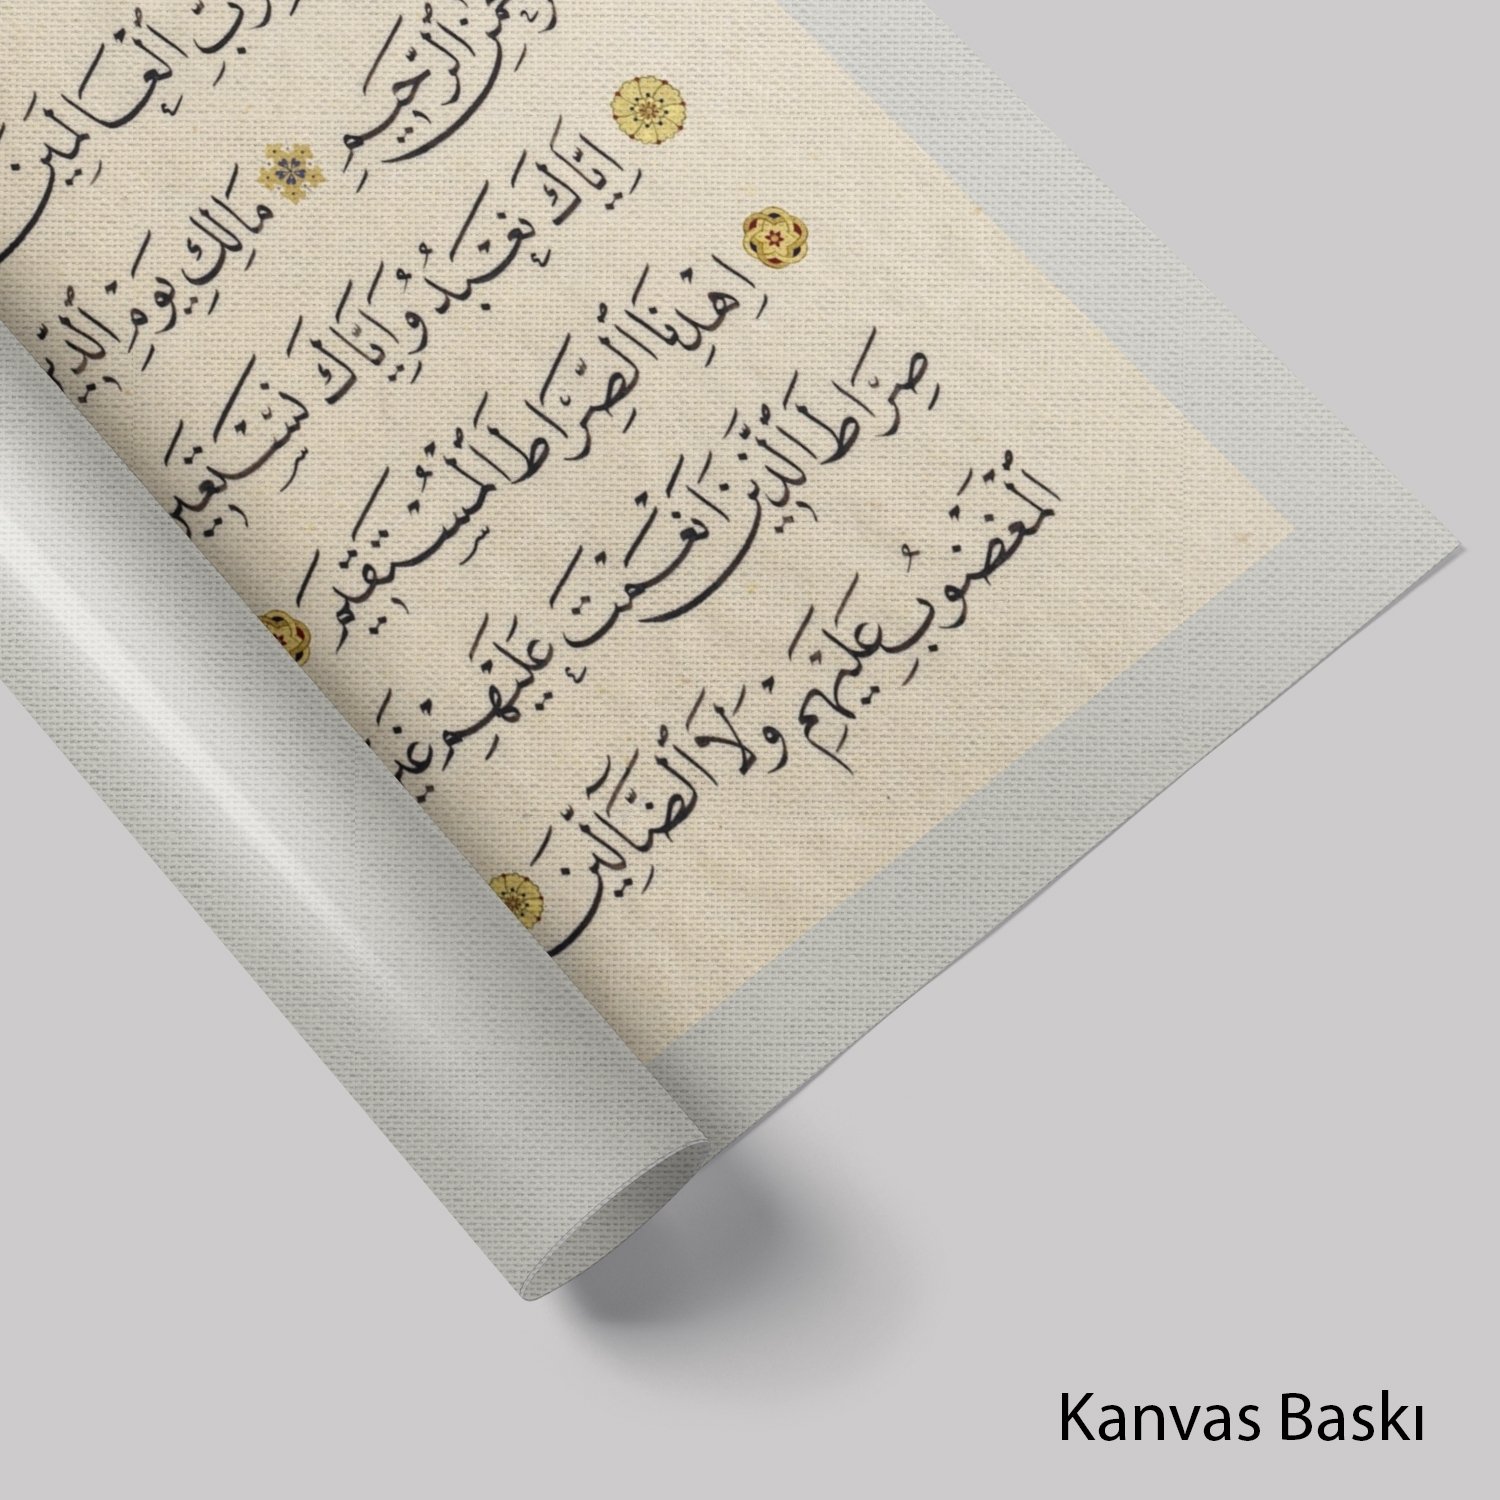 رَبِّ ٱلْعَالَمِينَ
ٱلرَّحِيمِ
مَالِكِ يَوْمِ ٱلدِّينِ
اِيَّاكَ نَعْبُدُ وَاِيَّاكَ نَسْتَعِينُ
اِهْدِنَا ٱلصِّرَاطَ ٱلْمُسْتَقِيمَ
صِرَاطَ ٱلَّذِينَ اَنْعَمْتَ عَلَيْهِمْ
ٱلْمَغْضُوبِ عَلَيْهِمْ وَلَا ٱلضَّٓالِّينَ
Kanvas Baskı